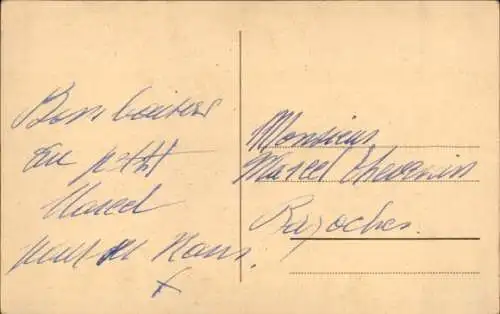 Bons baisers
du petit
Marcel
pour
Monsieur
Marcel Thevenin
Bazoches.